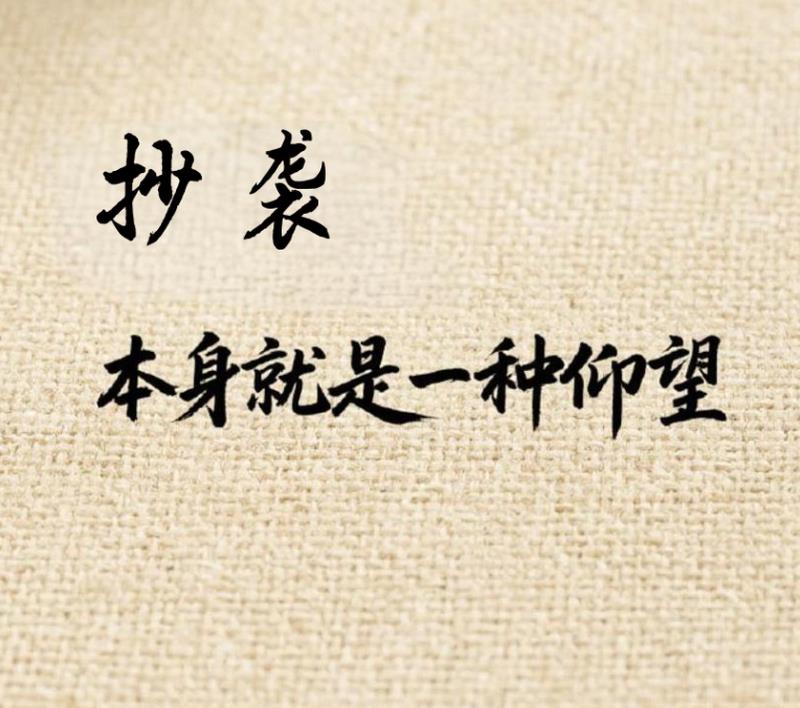 抄袭
本身就是一种仰望